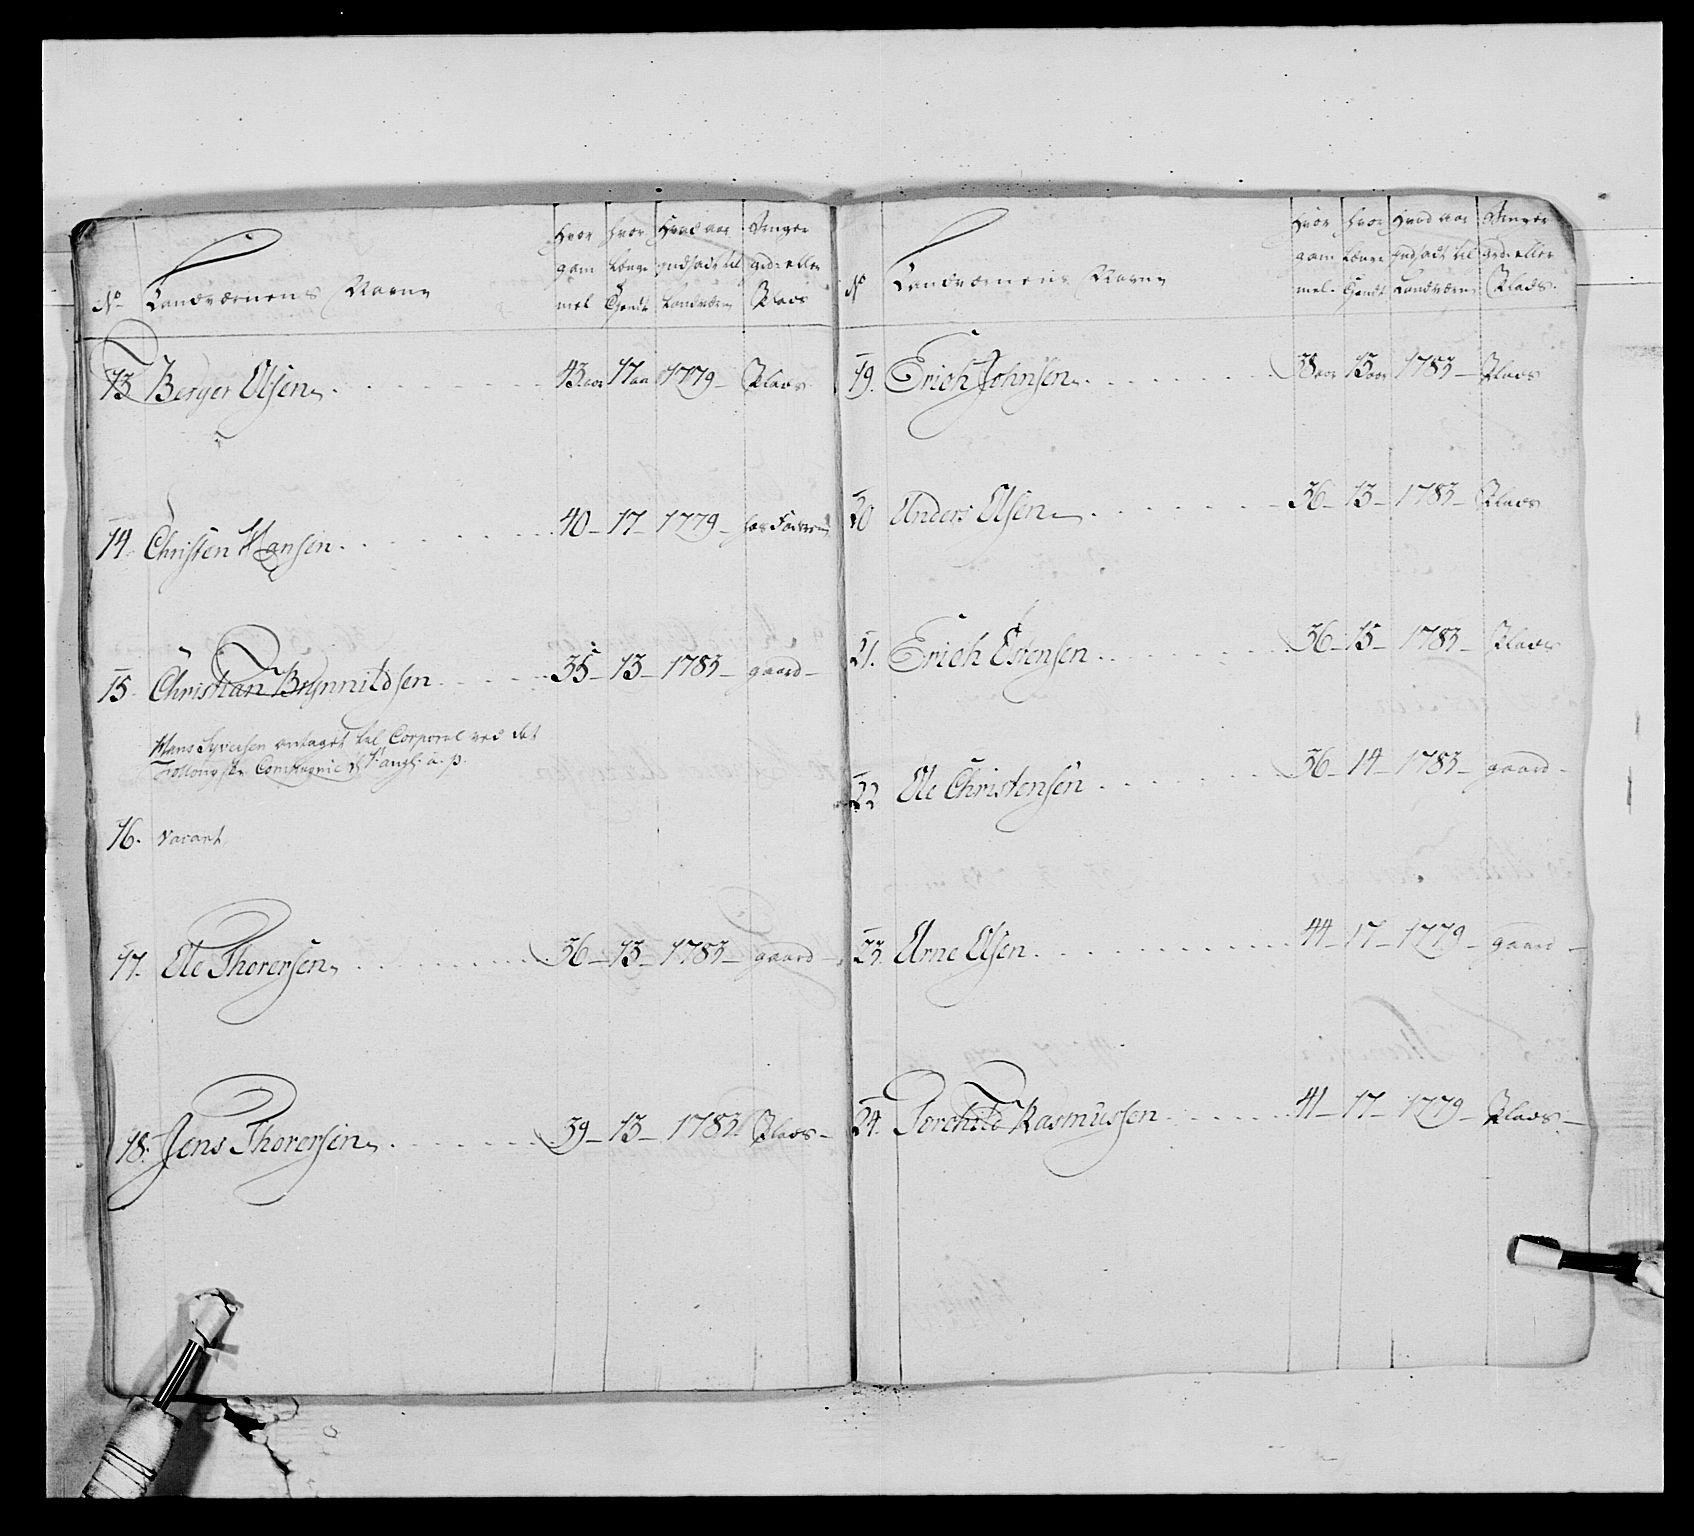 No Landværnens Navne Hvor gam mel hvor længe Tjendt Hvad aar indsadt til Landværn Bruger grd: eller Plads
13 Berger Olsen 43 aar 17 aar 1779 Plads
14. Christen Hansen 40 17 1779 hos Faderen
15. Christian Brynnildsen 35 13 1783 gaard
Hans Syversen antaget til Corporal ved det
Compagnie d
16. vacant
17. Ole Thorersen 36 13 1783 gaard
18. Jens Thorersen 39 13 1783 Plads
No Landværnens Navne Hvor gam mel. hvor længe Tjendt Hvad aar indsadt til Landværn Bruger grd: eller Plads.
19. Erich Johnsen 38 aar 13 aar 1783 Plads
20 Anders Olsen 36 13 1783 Plads
21. Erich Estensen 36 13 1783 Plads
22 Ole Christensen 36 14 1783 gaard
23. Arne Olsen 44 17 1779 gaard
24. Torchild Rasmussen 41 17 1779 Plads